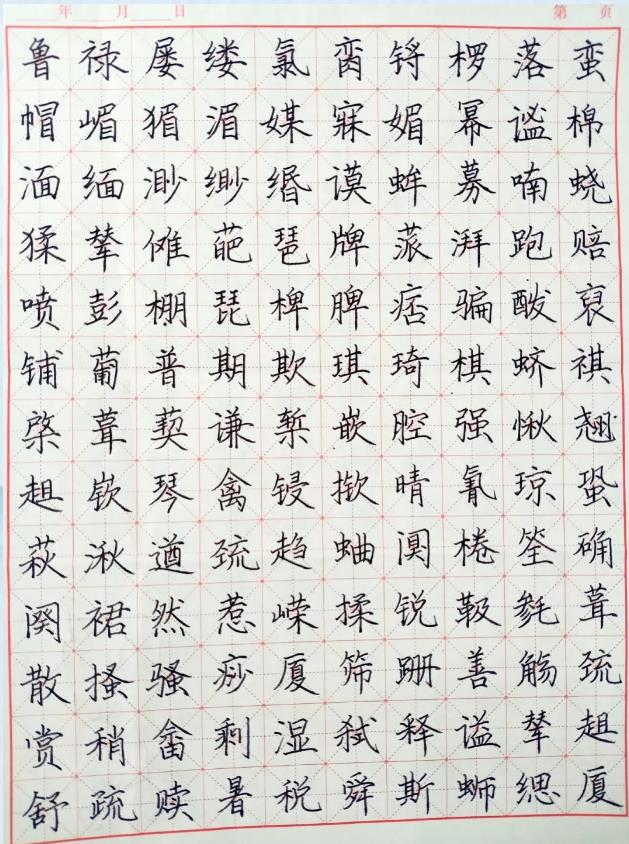 年 月 日 第 页
鲁禄屡缕氯脔锊椤落蛮
帽嵋猸湄媒寐媚幂谧棉
湎缅渺缈缗谟蛑募喃蛲
猱辇傩葩琶牌蒎湃跑赔
喷彭棚琵椑脾痞骗酦裒
铺葡普期欺琪琦棋蛴祺
棨葺葜谦椠嵌腔强愀翘
趄嵚琴禽锓揿晴氰琼蛩
萩湫遒巯趋蛐阒棬筌确
阕裙然惹嵘揉锐靸毵葺
散搔骚痧厦筛跚善觞巯
赏稍畲剩湿弑释谥辇趄
舒疏赎暑税舜斯蛳缌厦